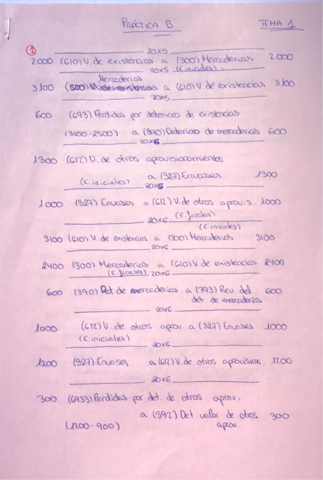 PRÁCTICA B TEMA 1
① 20X5
2000 (610) V. de existencias a (300) Mercaderías 2000
20X5 (E. iniciales)
Mercaderías
3100 (300) a (610) V. de existencias 3100
20X5
600 (693) Pérdidas por deterioro de existencias
(3100-2500) a (390) Deterioro de mercaderías 600
1300 (612) V. de otros aprovisionamientos
(E. iniciales) a (327) Envases 1300
20X5
1000 (327) Envases a (612) V. de otros aprovis. 1000
20X6 (E. finales)
(E. iniciales)
3100 (610) V. de existencias a 300) Mercaderías 3100
2400 (300) Mercaderías a (610) V. de existencias 2400
(E. finales) 20X6
600 (390) Det. de mercaderías a (793) Rev. del 600
det. de mercaderías
20X6
1000 (612) V. de otros aprov a (327) Envases 1000
(E. iniciales)
20X6
1200 (327) Envases a (612) V. de otros aprovision. 1200
20X6
300 (6933) Pérdidas por det. de otros aprov.
a (392) Det. valor de otros 300
(1200-900) aprov